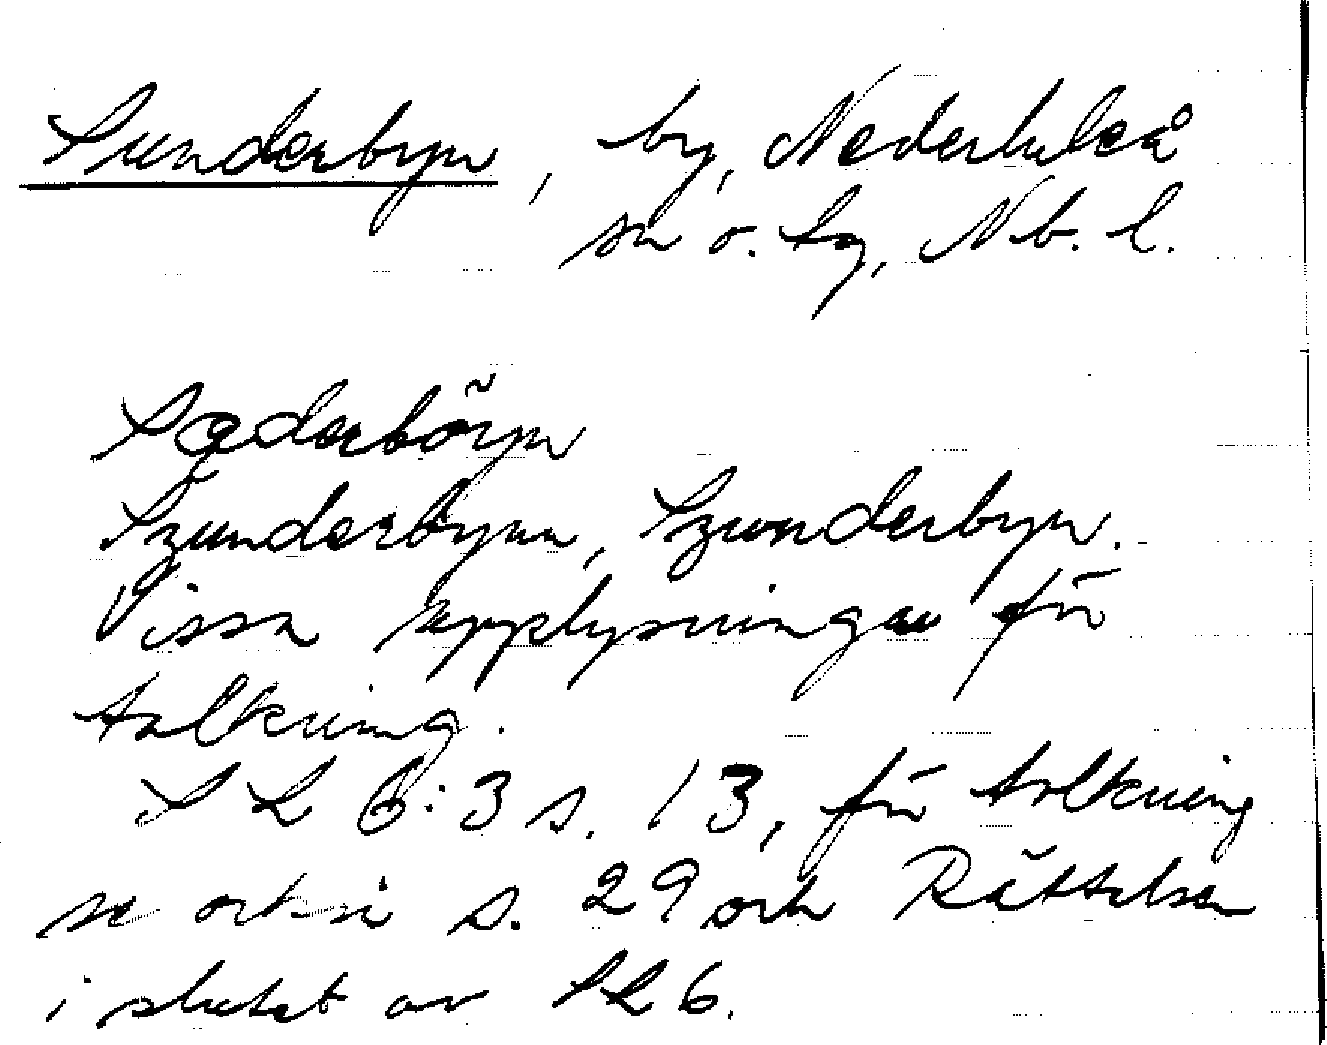 Sunderbyn, by, Nederluleå
sn o. tg, Nb. l.
Søderbõyn
Szunderbynn, Szwnderbyn.
Vissa upplysningar för
tolkning.
SL 6:3 s. 13, för tolkning
se också s. 29 och Rättelser
i slutet av SL 6.